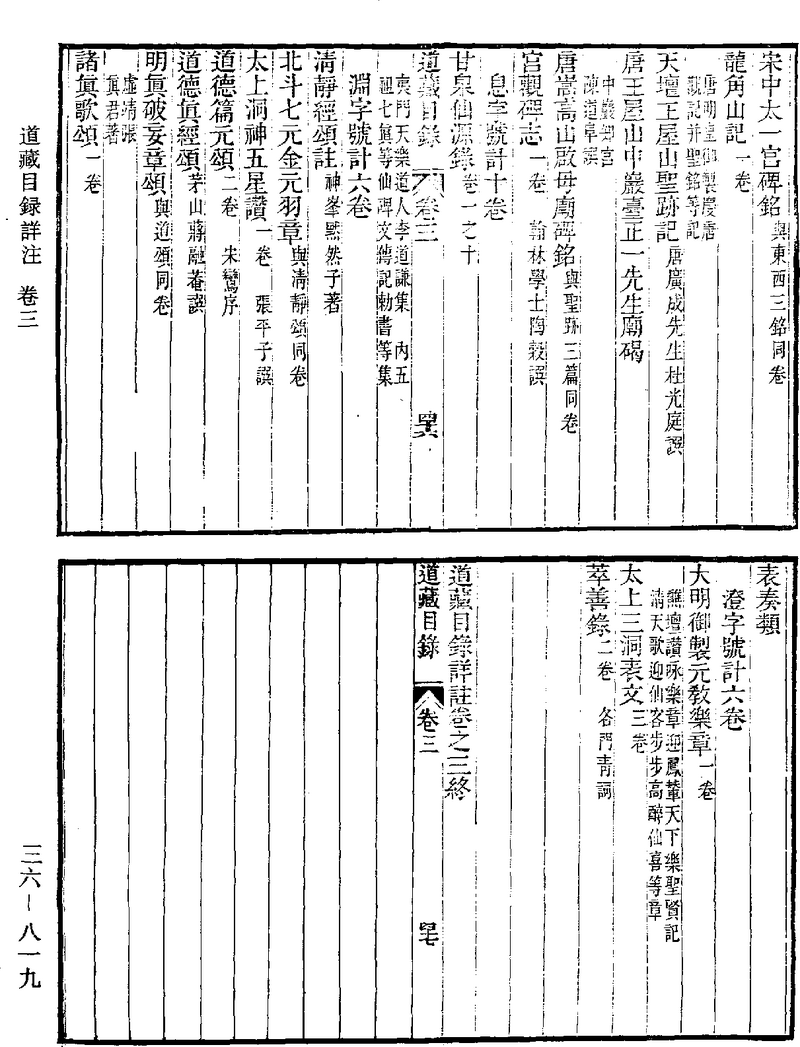 宋中太一宮碑銘與東西三銘同卷
龍角山記一卷
唐明皇御製慶唐
觀記并聖銘等記
天壇王屋山聖跡記唐廣成先生杜光庭譔
唐王屋山中巖臺正一先生廟碣
中巖知宮
陳道阜譔
唐嵩高山啟母廟碑銘與聖跡三篇同卷
宮觀碑志一卷 翰林學士陶穀譔
息字號計十卷
甘泉仙源錄卷一之十
道藏目錄 卷三 四六
夷門天樂道人李道謙集 內五
祖七眞等仙碑文傳記勅書等集
淵字號計六卷
清靜經頌註神峯默然子著
北斗七元金元羽章與清靜頌同卷
太上洞神五星讚一卷 張平子譔
道德篇元頌二卷 宋鸞序
道德眞經頌茅山蔣融菴譔
明眞破妄章頌與道頌同卷
虛靖張
眞君著
諸眞歌頌一卷
道藏目録詳注 卷三
表奏類
澄字號計六卷
大明御製元教樂章一卷
醮壇讚咏樂章迎鳳輦天下樂聖賢記
淸天歌迎仙客步步高醉仙喜等章
太上三洞表文三卷
萃善錄二卷 各門青詞
道藏目錄詳註卷之三終
道藏目錄 卷三 四七
三六—八一九